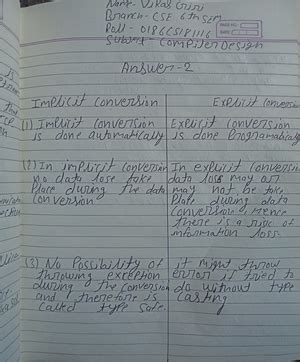 Name- Vikas Giri
Branch- CSE 6th Sem
Roll-
Subject - Compiler Design
PAGE NO.:
DATE:
Answer-2
Implicit conversion
Explicit conversion
(1) Implicit conversion
is done automatically
Explicit conversion
is done Programatically
(2) In implicit conversion
no data lose take
Place during the data
Conversion
In explicit conversion
data loss may or
may not be take
Place during data
Conversion. Hence
there is a risk of
information loss.
(3) No Possibility of
throwing exception
during the conversion
and therefore is
called type safe.
it might throw
error if tried to
do without type
casting